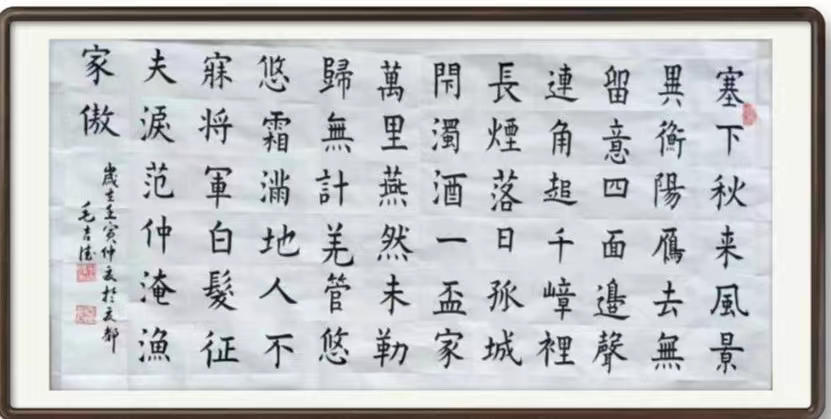 塞下秋来風景
異衡陽鴈去無
留意四面邉聲
連角起千嶂裡
長煙落日孤城
閇濁酒一盃家
萬里燕然未勒
歸無計羌管悠
悠霜滿地人不
寐将軍白髮征
夫淚范仲淹漁
家傲
歲在壬寅仲夏於夏都
毛吉德